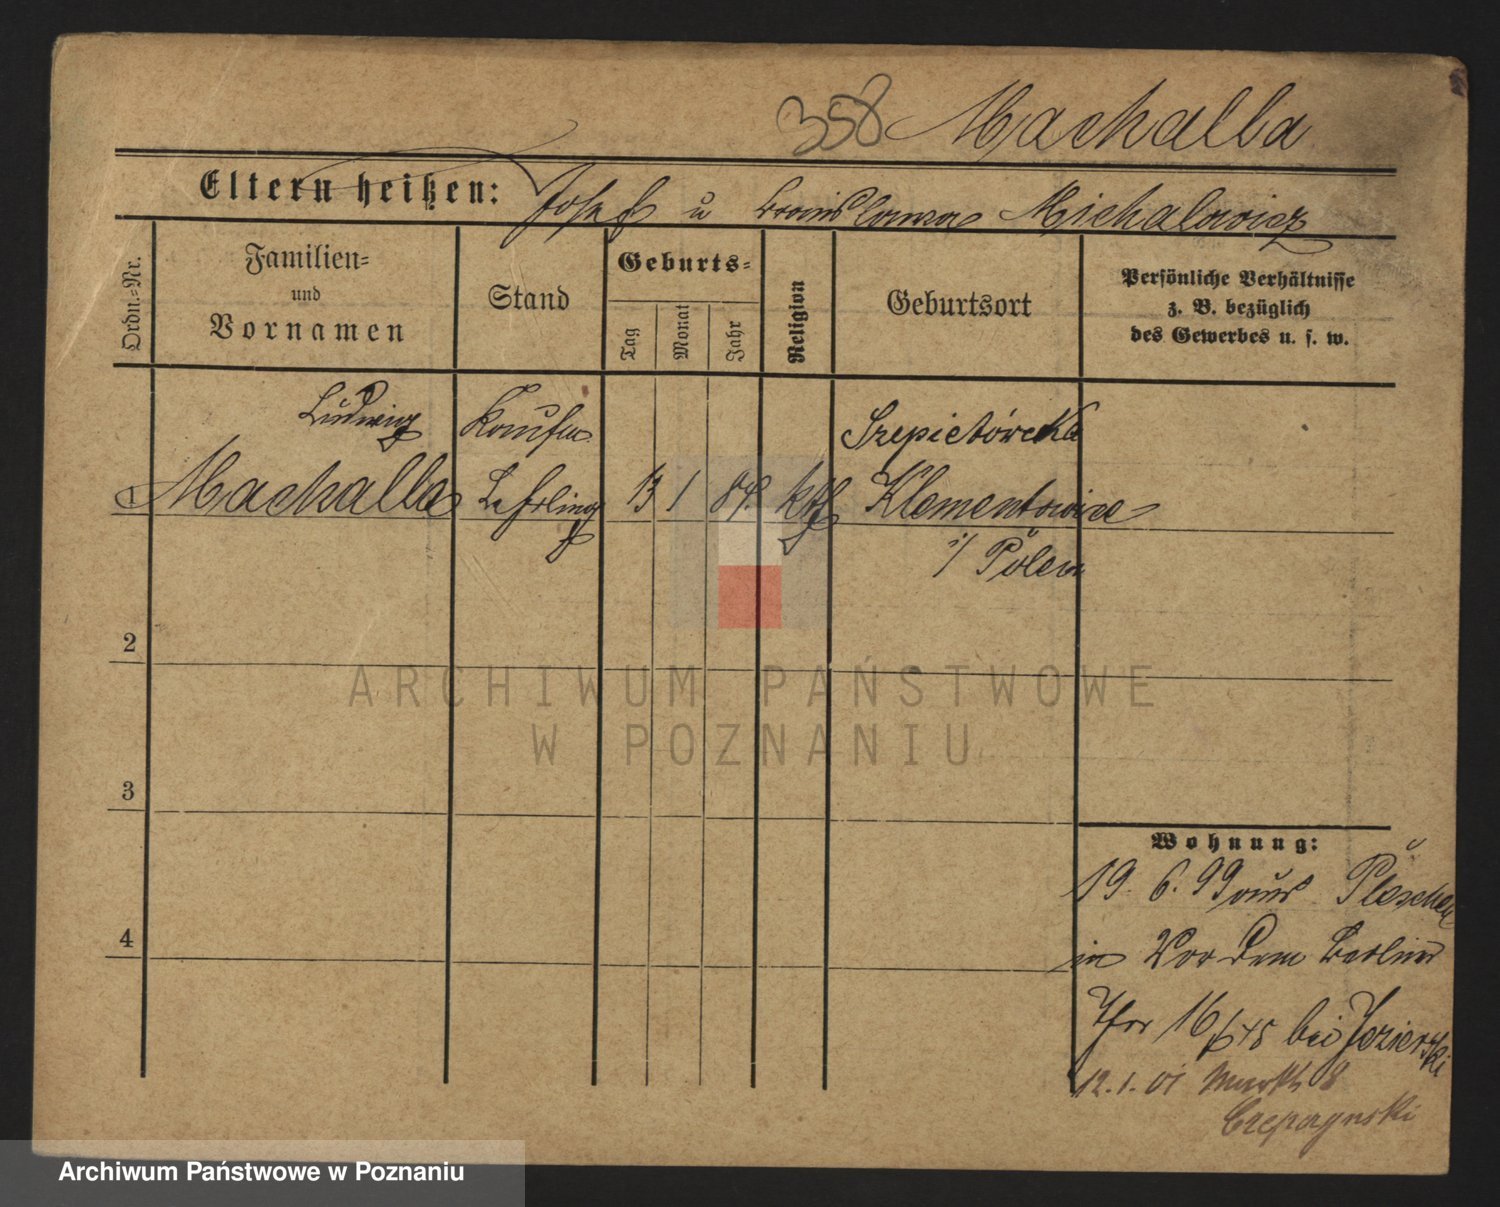 358 Machalla
Eltern heißen: Josef u Bronislawa Michalowicz
Ordn.=Nr.
Familien=
und
Vornamen
Stand
Geburts=
Tag
Monat
Jahr
Religion
Geburtsort
Persönliche Verhältnisse
z. B. bezüglich
des Gewerbes u. s. w.
Ludwig Kaufm. Szepietówcka
1 Machalla Lehrling 13 1 84. kth Klementowice
i/ Polen
2
3
4
Wohnung:
19. 6. 99 aus Pleschen
in Vor dem Berliner
Thor 16 bei Jezierski
12. 1. 01 Markt 8
ARCHIWUM PAŃSTWOWE
W POZNANIU
Archiwum Państwowe w Poznaniu